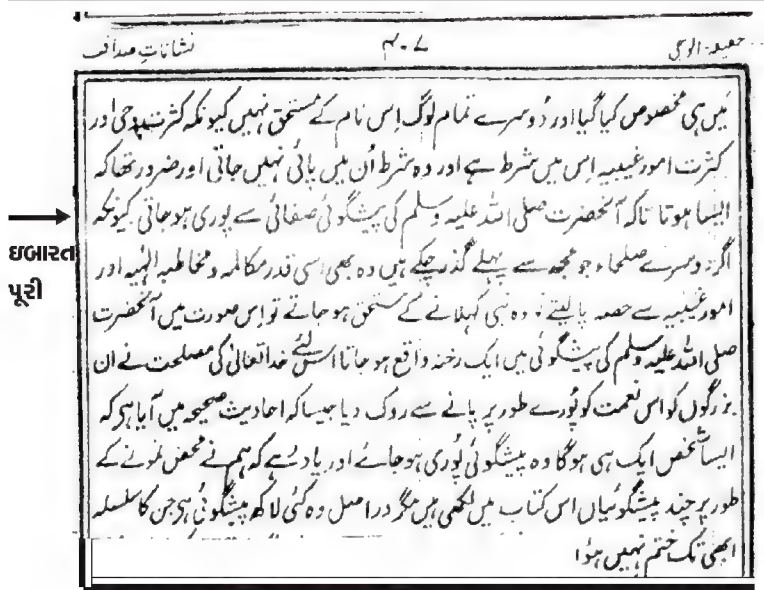 حقیقۃ الوحی ۴۰۷ نشاناتِ صداقت
مَیں ہی مخصوص کیا گیا اور دُوسرے تمام لوگ اِس نام کے مستحق نہیں کیونکہ کثرت وحی اور
کثرت امور غیبیہ اِس میں شرط ہے اور وہ شرط اُن میں پائی نہیں جاتی اور ضرور تھا کہ
ایسا ہوتا تاکہ آنحضرت صلی اللہ علیہ وسلم کی پیشگوئی صفائی سے پوری ہو جاتی کیونکہ
ઇબારત પૂરી
اگر دوسرے صلحاء جو مجھ سے پہلے گذر چکے ہیں وہ بھی اسی قدر مکالمہ و مخاطبہ الٰہیہ اور
امور غیبیہ سے حصہ پا لیتے تو وہ نبی کہلانے کے مستحق ہو جاتے تو اِس صورت میں آنحضرت
صلی اللہ علیہ وسلم کی پیشگوئی میں ایک رخنہ واقع ہو جاتا اس لئے خدا تعالیٰ کی مصلحت نے ان
بزرگوں کو اس نعمت کو پُورے طور پر پانے سے روک دیا جیسا کہ احادیث صحیحہ میں آیا ہی کہ
ایسا شخص ایک ہی ہوگا وہ پیشگوئی پُوری ہو جائے اور یاد رہے کہ ہم نے محض نمونے کے
طور پر چند پیشگوئیاں اس کتاب میں لکھی ہیں مگر دراصل وہ کئی لاکھ پیشگوئی ہی جن کا سلسلہ
ابھی تک ختم نہیں ہؤا